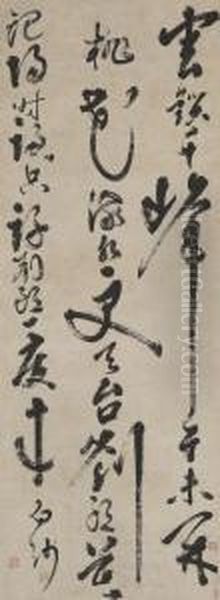 雲鎖千峰午未開
桃花流水更天台劉郎莫
記歸時路只許劉郎一度來白沙